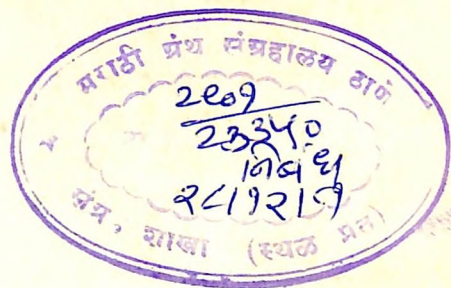 मराठी ग्रंथ संग्रहालय ठाणे
२९०१
२३३५०
निबंध
२८।१२।
शाखा (स्थळ प्रत)